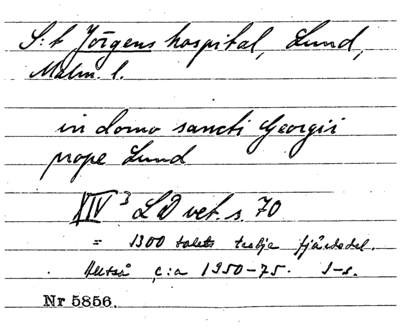 S:t Jörgens hospital, Lund,
Malm. l.
in domo sancti Georgii
prope Lund
XIV 3 LD vet. s. 70
= 1300 talets tredje fjärdedel.
Alltså c:a 1350-75.
Nr 5856.